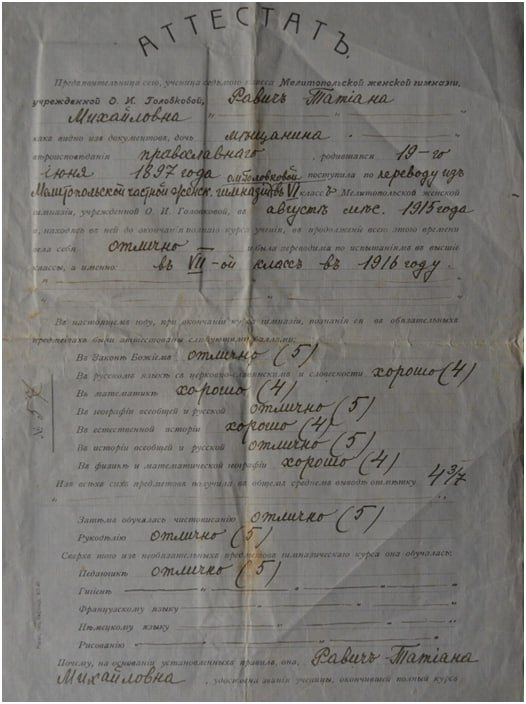 АТТЕСТАТЪ.
Предъявительница сего, ученица седьмого класса Мелитопольской женской гимназіи,
учрежденной О. И. Головковой, Равичъ Татіана
Михайловна
какъ видно изъ документовъ, дочь мѣщанина
вѣроисповѣданія православнаго, родившаяся 19-го
іюня 1897 года поступила по переводу изъ
Мелитопольской частной женск. гимназіи О. И. Головковой въ VI классъ Мелитопольской женской
гимназіи, учрежденной О. И. Головковой, въ августѣ мѣс. 1915 года
и, находясь въ ней до окончанія полнаго курса ученія, въ продолженіе всего этого времени
вела себя отлично и была переводима по испытаніямъ въ высшіе
классы, а именно: въ VII-ой классъ въ 1916 году.
Въ настоящемъ году, при окончаніи курса гимназіи, познанія ея въ обязательныхъ
предметахъ были аттестованы слѣдующими баллами:
Въ Законѣ Божіемъ отлично (5)
Въ русскомъ языкѣ съ церковно-славянскимъ и словесности хорошо (4)
Въ математикѣ хорошо (4)
Въ географіи всеобщей и русской отлично (5)
Въ естественной исторіи хорошо (4)
Въ исторіи всеобщей и русской отлично (5)
Въ физикѣ и математической географіи хорошо (4)
Изъ всѣхъ сихъ предметовъ получила въ общемъ среднемъ выводѣ отмѣтку 4 3/7
Затѣмъ обучалась чистописанію отлично (5)
Рукодѣлію отлично (5)
Сверхъ того изъ необязательныхъ предметовъ гимназическаго курса она обучалась:
Педагогикѣ отлично (5)
Гигіенѣ
Французскому языку
Нѣмецкому языку
Рисованію
Почему, на основаніи установленныхъ правилъ, она, Равичъ Татіана
Михайловна, удостоена званія ученицы, окончившей полный курсъ
№ 57